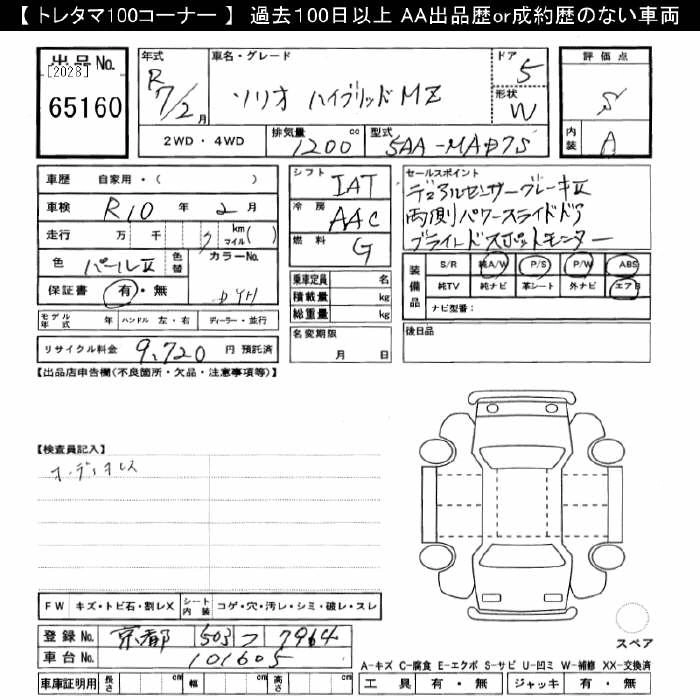 【 トレタマ100コーナー 】 過去100日以上 AA出品歴or成約歴のない車両
出品No. [2028] 65160
年式 R7/2月
車名・グレード ソリオ ハイブリッドMZ
ドア 5
形状 W
評価点 S
内装 A
2WD・4WD
排気量 1200 cc
型式 5AA-MAD7S
車歴 自家用・( )
車検 R10年 2月
走行 万 千 km マイル( )
色 パールⅡ 色替 カラーNo.
保証書 有・無
モデル年式 年 ハンドル 左・右 ディーラー・並行
リサイクル料金 9,720 円 預託済
シフト IAT
冷房 AAC
燃料 G
乗車定員 名
積載量 kg
総重量 kg
名変期限 月 日
セールスポイント
デュアルセンサーブレーキⅡ
両側パワースライドドア
ブラインドスポットモニター
装備品 S/R 純A/W P/S P/W ABS
純TV 純ナビ 革シート 外ナビ エアB
ナビ型番:
後日品
【出品店申告欄(不良箇所・欠品・注意事項等)】
【検査員記入】
オーディオレス
FW キズ・トビ石・割レX シート内装 コゲ・穴・汚レ・シミ・破レ・スレ
登録No. 京都 503 つ 7964
車台No. 101605
車庫証明用 長さ cm 幅 cm 高さ cm
スペア
A-キズ C-腐食 E-エクボ S-サビ U-凹ミ W-補修 XX-交換済
工具 有・無 ジャッキ 有・無